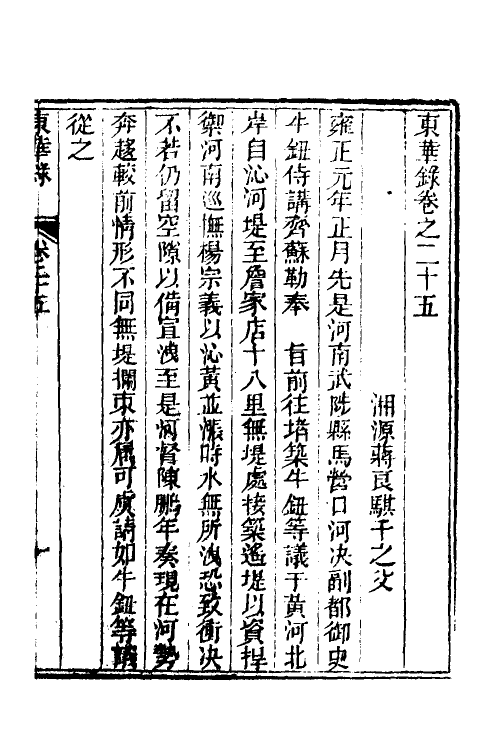 東華錄卷之二十五
湘源蔣良騏千之父
雍正元年正月先是河南武陟縣馬營口河決副都御史
牛鈕侍講齊蘇勒奉 旨前往堵築牛鈕等議于黃河北
岸自沁河堤至詹家店十八里無堤處接築遙堤以資捍
禦河南巡撫楊宗義以沁黃並漲時水無所洩恐致衝決
不若仍留空隙以備宣洩至是河督陳鵬年奏現在河勢
奔趨較前情形不同無堤攔束亦屬可虞請如牛鈕等議
從之
東華錄 卷二十五 一